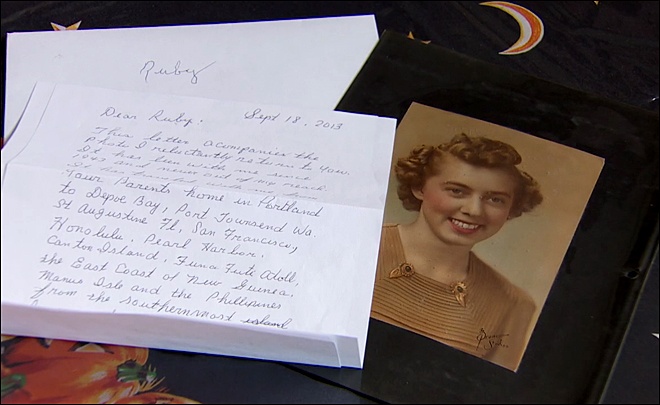 Ruby
Dear Ruby. Sept 18, 2013
This letter acompanies the
photo I reluctantly return to you.
It has been with me since
1943 and never out of my reach
Your Parents home in Portland
to Depoe Bay, Port Townsend Wa.
St Augustine Fl, San Francisco,
Honolulu. Pearl Harbor.
Canton Island, Funa Fute Atoll,
the East Coast of New Guinea,
Manus Isle and the Phillipines
from the southernmost island